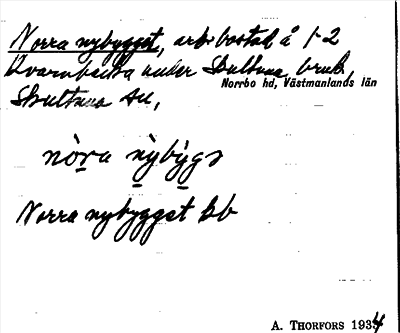 Norra nybygget, arb.bostad å 1-2
Kvarnbacka under Skultuna bruk,
Norrbo hd, Västmanlands län
Skultuna sn,
nòra nỳbỳgə
Norra nybygget kb
A. THORFORS 1934